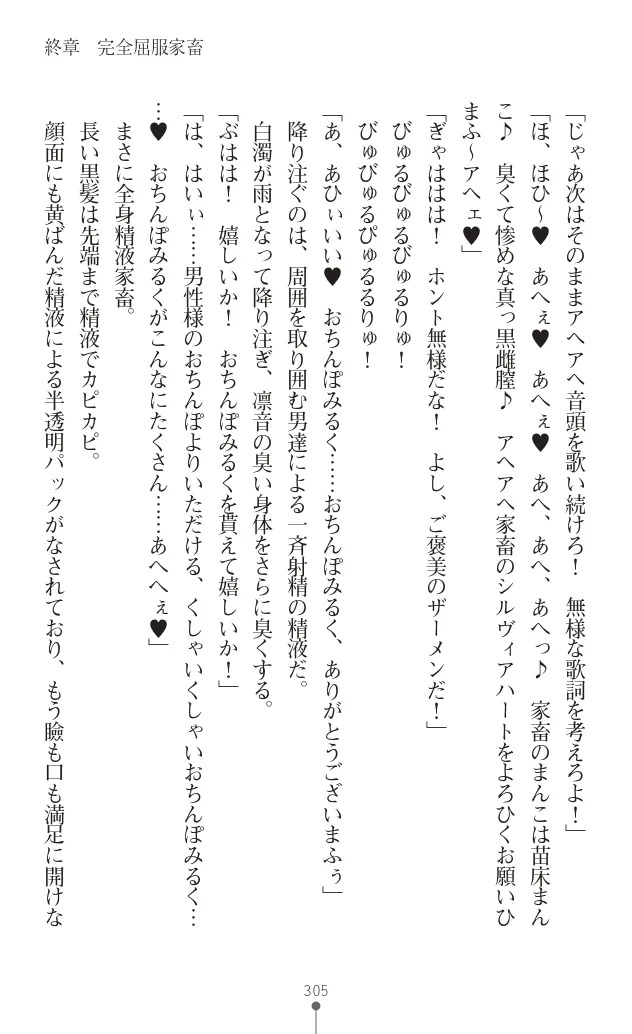 終章　完全屈服家畜
「じゃあ次はそのままアヘアヘ音頭を歌い続けろ！　無様な歌詞を考えろよ！」
「ほ、ほひ～♥　あへぇ♥　あへぇ♥　あへ、あへ、あへっ♪　家畜のまんこは苗床まん
こ♪　臭くて惨めな真っ黒雌膣♪　アヘアヘ家畜のシルヴィアハートをよろひくお願いひ
まふ～アヘェ♥」
「ぎゃははは！　ホント無様だな！　よし、ご褒美のザーメンだ！」
びゅるびゅるびゅるりゅ！
びゅびゅるぴゅるるりゅ！
「あ、あひぃいい♥　おちんぽみるく……おちんぽみるく、ありがとうございまふぅ」
降り注ぐのは、周囲を取り囲む男達による一斉射精の精液だ。
白濁が雨となって降り注ぎ、凛音の臭い身体をさらに臭くする。
「ぶはは！　嬉しいか！　おちんぽみるくを貰えて嬉しいか！」
「は、はいぃ……男性様のおちんぽよりいただける、くしゃいくしゃいおちんぽみるく…
…♥　おちんぽみるくがこんなにたくさん……あへへぇ♥」
まさに全身精液家畜。
長い黒髪は先端まで精液でカピカピ。
顔面にも黄ばんだ精液による半透明パックがなされており、もう瞼も口も満足に開けな
305